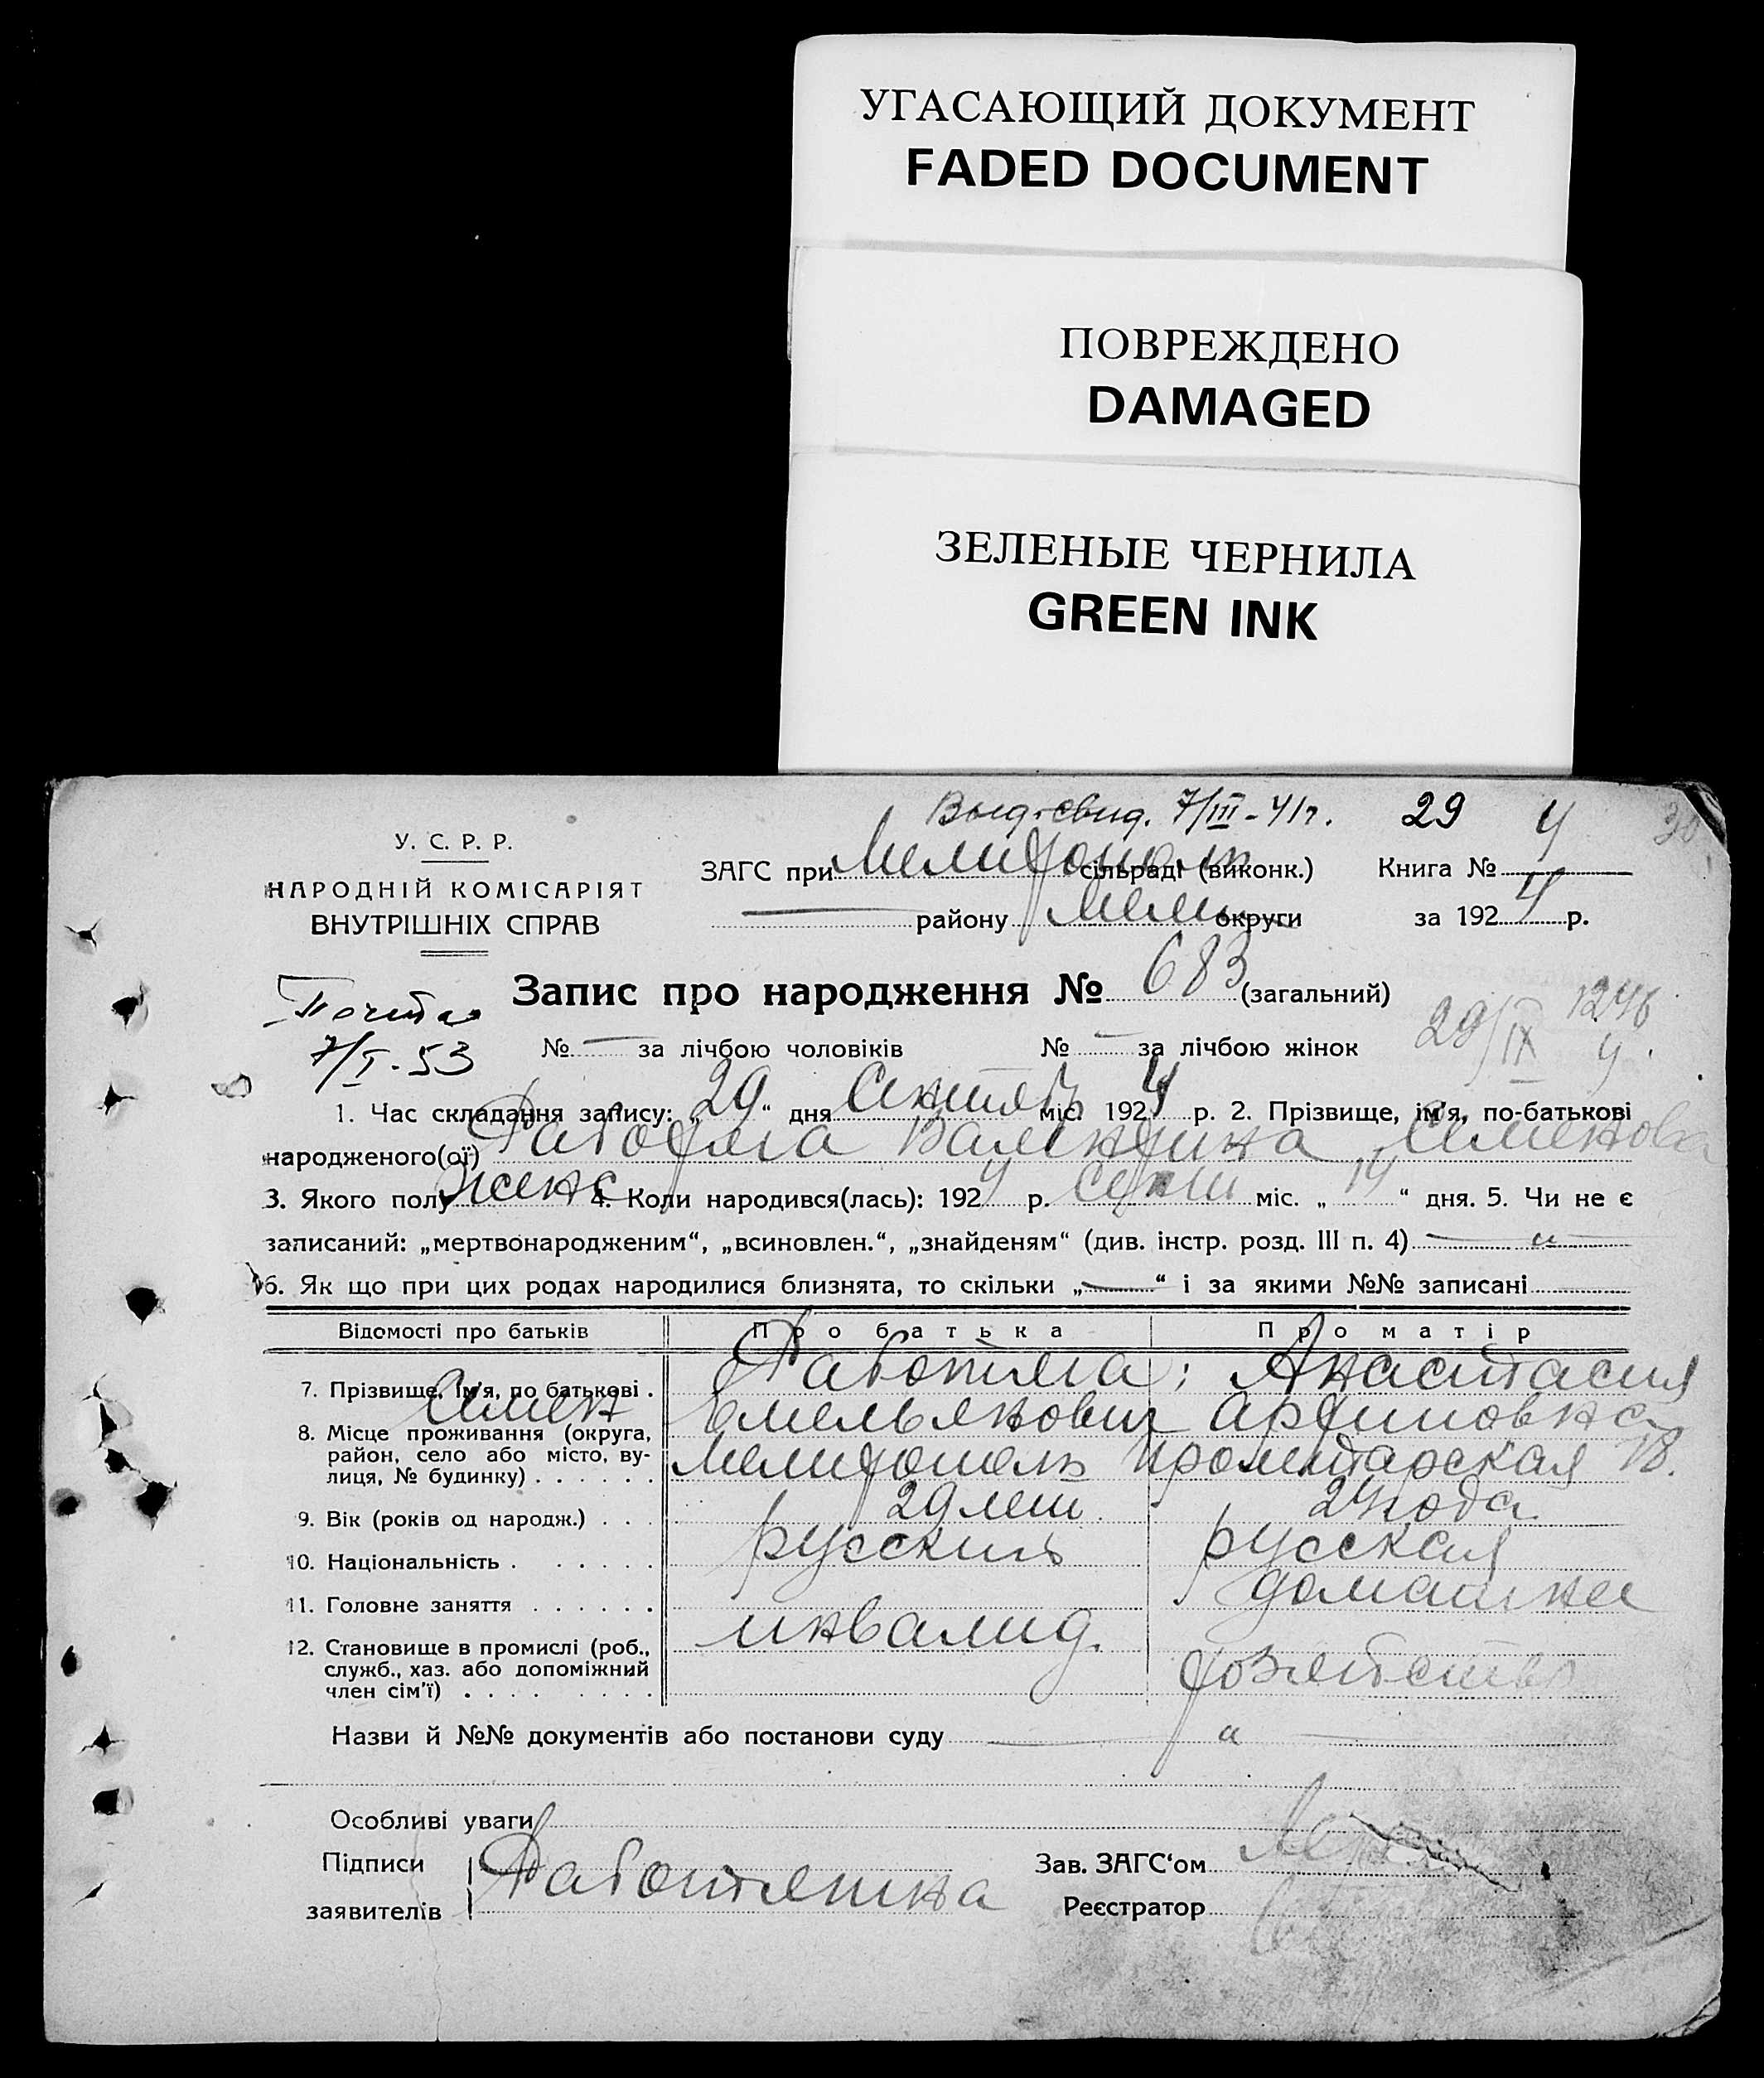 УГАСАЮЩИЙ ДОКУМЕНТ
FADED DOCUMENT
ПОВРЕЖДЕНО
DAMAGED
ЗЕЛЕНЫЕ ЧЕРНИЛА
GREEN INK
Выд. свид. 7/III-41г. 29 4 30
У. С. Р. Р.
НАРОДНІЙ КОМІСАРІЯТ
ВНУТРІШНІХ СПРАВ
ЗАГС при Мелитополь сільраді (виконк.) Книга № 4
— району Мел. округи за 1924 р.
Запис про народження № 683 (загальний)
7/I-53
№ — за лічбою чоловіків № — за лічбою жінок
29/IX 4 1246
1. Час складання запису: „29“ дня Сентяб міс. 1924 р. 2. Прізвище, ім'я, по-батькові
народженого(ої) Работяга Валентина Семенова
3. Якого полу женс 4. Коли народився(лась): 1924 р. сент міс. „14“ дня. 5. Чи не є
записаний: „мертвонародженим“, „всиновлен.“, „знайденям“ (див. інстр. розд. III п. 4) — „ —
6. Як що при цих родах народилися близнята, то скільки „—“ і за якими №№ записані
Відомості про батьків Про батька Про матір
7. Прізвище, ім'я, по батькові . Работяга; Анастасия
Семен Емельянович
8. Місце проживання (округа,
район, село або місто, ву-
лиця, № будинку) . . . . . . Мелитополь Пролетарская 18.
9. Вік (років од народж.) . . . 29 лет 24 года
10. Національність . . . . . . русский русская
11. Головне заняття . . . . . . инвалид. домашнее
12. Становище в промислі (роб.,
служб., хаз. або допоміжний
член сім'ї) . . . . . . . .
Назви й №№ документів або постанови суду — „ —
Особливі уваги
Підписи
заявителів
Зав. ЗАГС'ом
Реєстратор